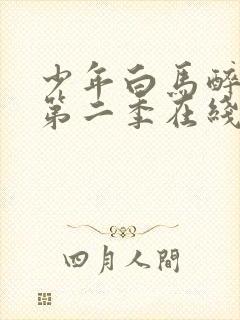 少年白馬醉
第二季在綫
四月人間